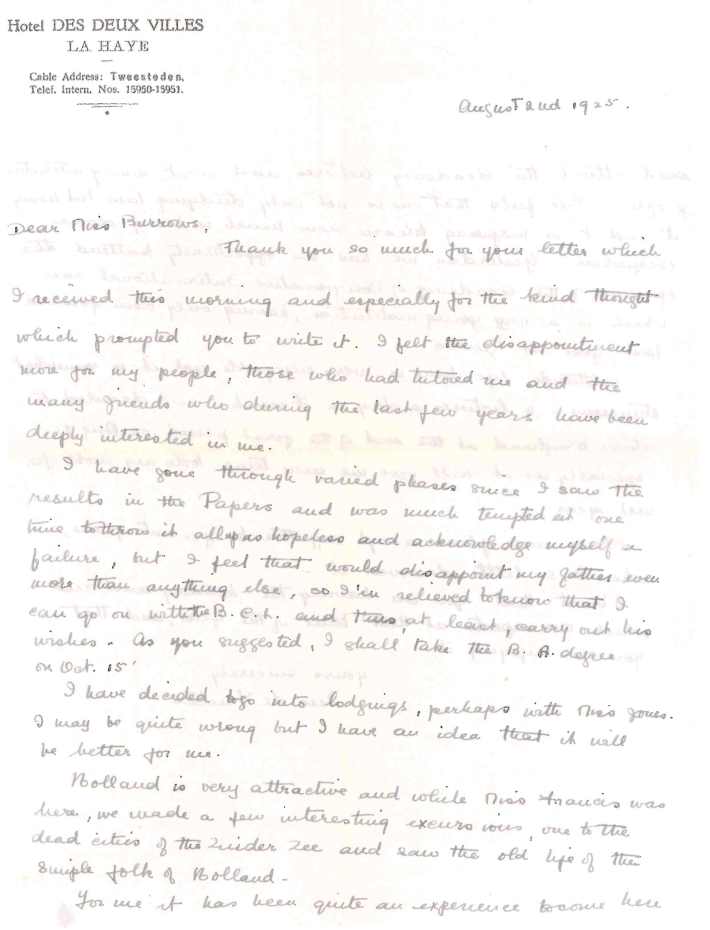 Hotel DES DEUX VILLES
LA HAYE
Cable Address: Tweesteden.
Telef. Intern. Nos. 15950-15951.
August 2nd 1925.
Dear Miss Burrows,
Thank you so much for your letter which
I received this morning and especially for the kind thought
which prompted you to write it. I felt the disappointment
more for my people, those who had tutored me and the
many friends who during the last few years have been
deeply interested in me.
I have gone through varied phases since I saw the
results in the Papers and was much tempted at one
time to throw it all up as hopeless and acknowledge myself a
failure, but I feel that would disappoint my father even
more than anything else, so I'm relieved to know that I
can go on with the B.C.L. and thus, at least, carry out his
wishes. As you suggested, I shall take the B.A. degree
on Oct. 15
I have decided to go into lodgings, perhaps with Miss Jones.
I may be quite wrong but I have an idea that it will
be better for me.
Holland is very attractive and while Miss Francis was
here, we made a few interesting excursions, one to the
dead cities of the Zuider Zee and saw the old life of the
simple folk of Holland.
For me it has been quite an experience to come here